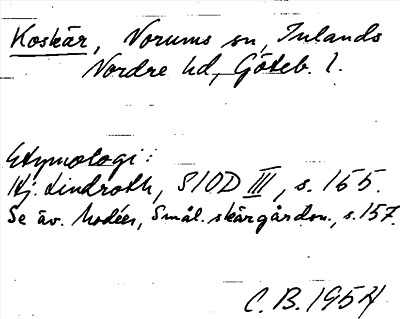 Koskär, Norums sn, Inlands
Nordre hd, Göteb. l.
Etymologi:
Hj. Lindroth, SIOD III, s. 165.
Se äv. Modéer, Smål. skärgårdsn., s. 157.
C. B. 1954